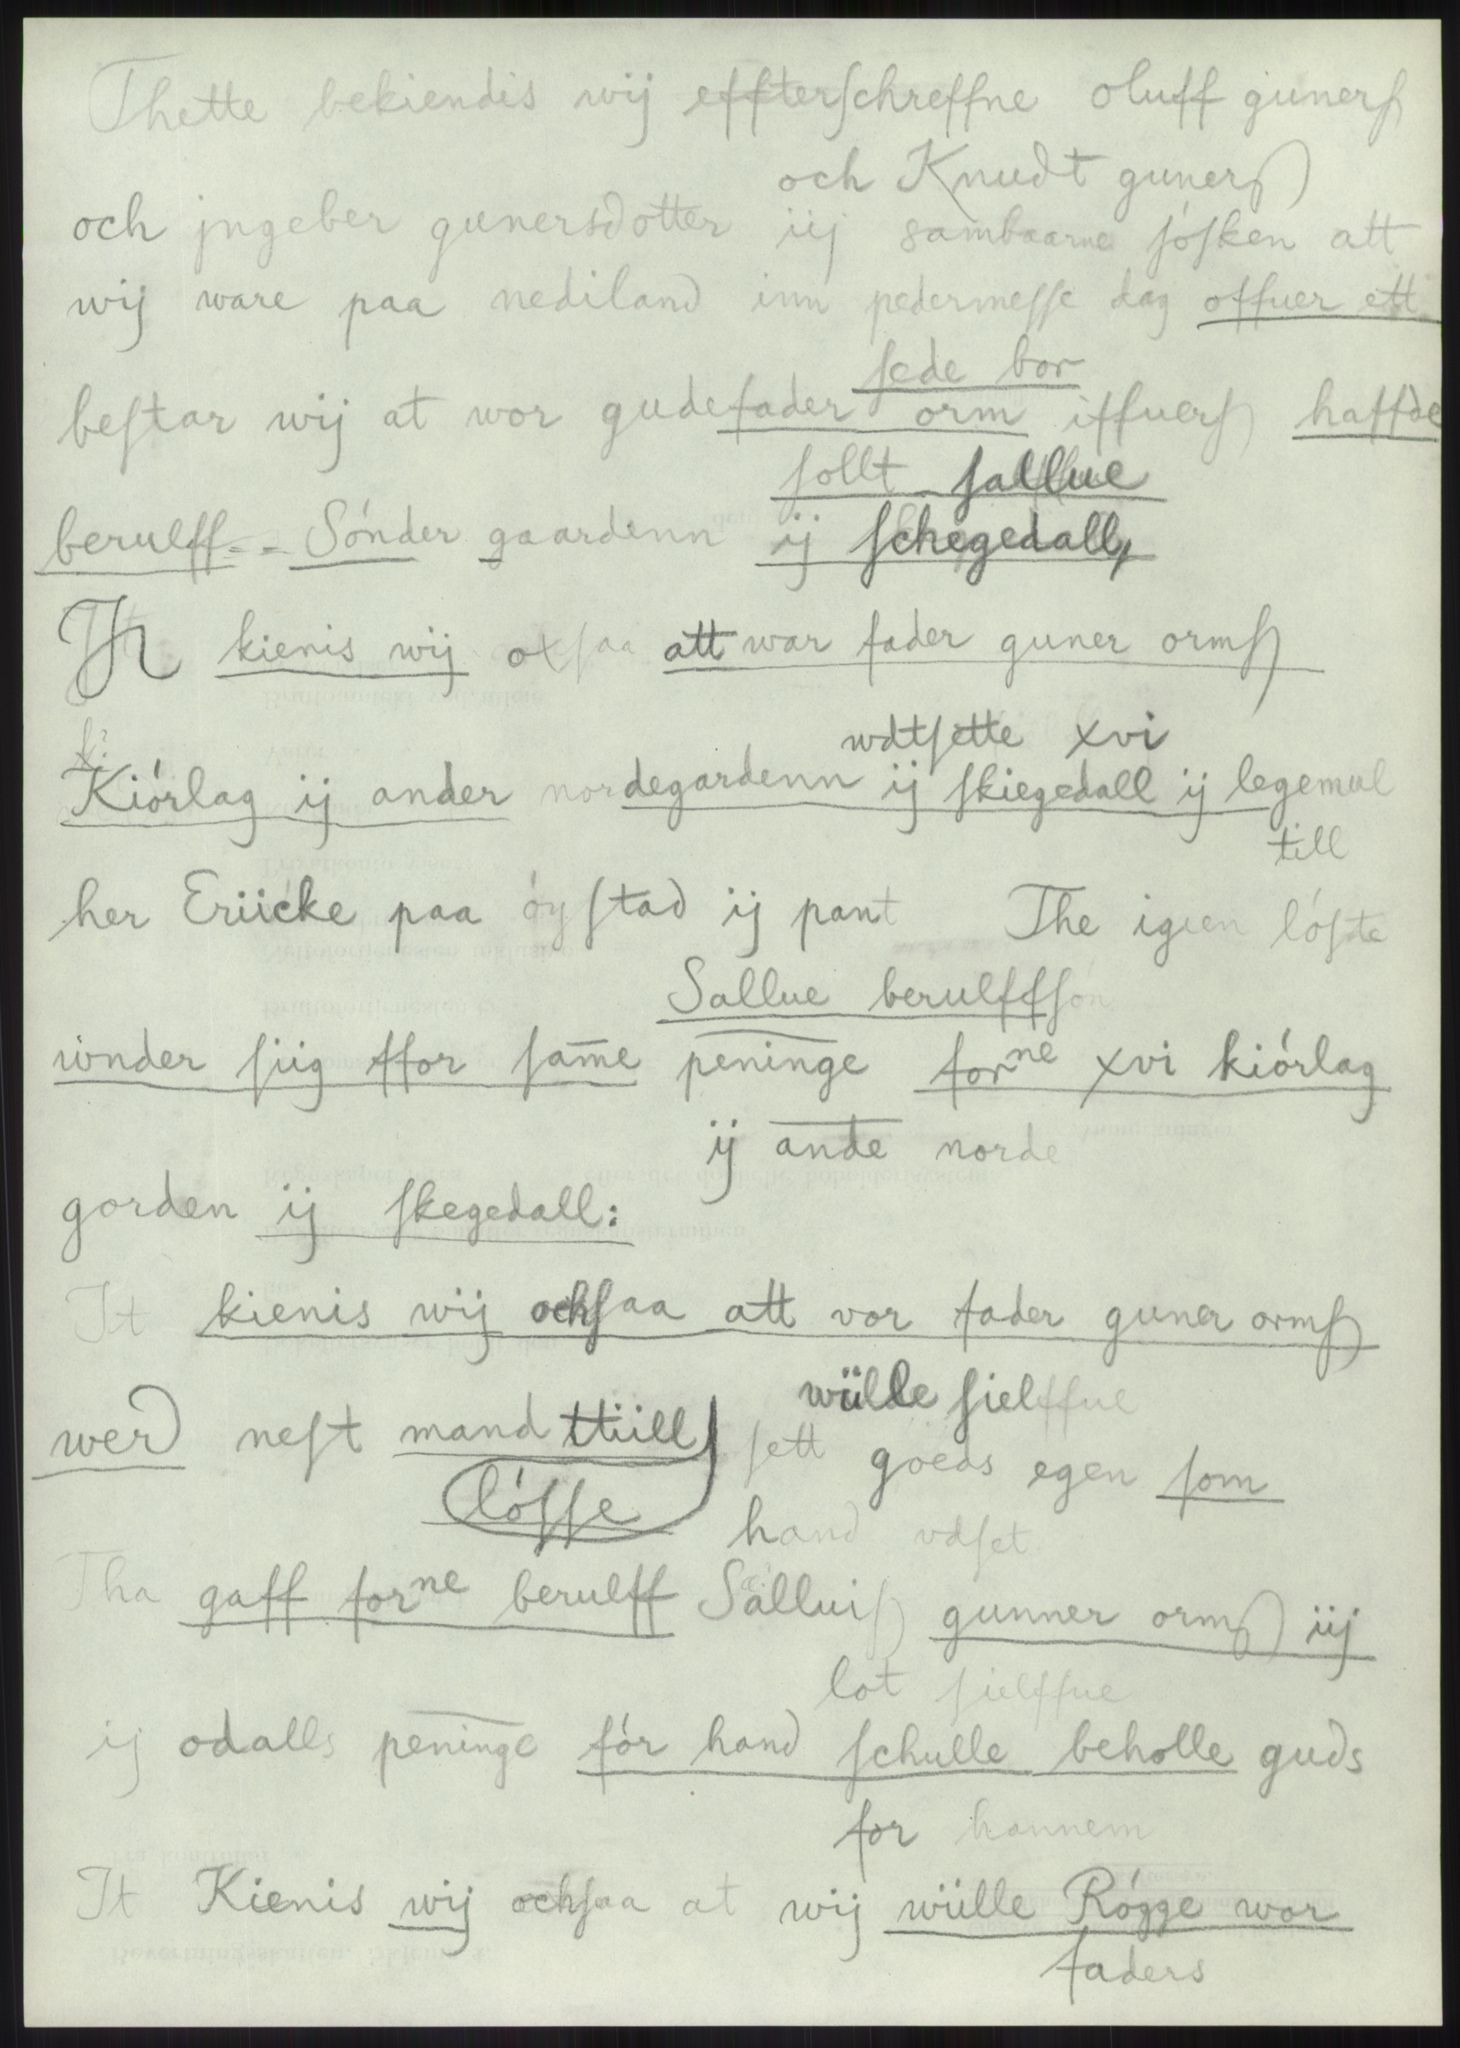 Thette bekiendis wij effterschreffne oluff gunerß
och Knudt gunerß
och jngeber gunersdotter iij sambaarne sósken att
wij ware paa nediland inn pedermesse dag offuer ett
sede bor
bestar wij at wor gudefader orm iffuerß haffde
sollt sallue
berulff Sónder gaardenn ij schegedall,
It kienis wij oxsaa att war fader guner ormß
wdtsette xvi
Kiórlag ij ander nordegardenn ij skiegedall ij legemul
till
her Eriicke paa óystad ij pant The igien lóste
Sallue berulffsón
wnder siig ffor same peninge forne xvi kiórlag
ij ande norde
gorden ij skegedall:
It kienis wij ochsaa att vor fader guner ormß
wülle sielffue
werd nest mand ttiill sett goeds egen som
lósse
hand vdset
Tha gaff forne berulff Salluiß gunner ormß iij
lot sielffue
ij odalls peninge fór hand schulle beholle guds
for hannem
It Kienis wij ochsaa at wij wülle Rógge wor
faders